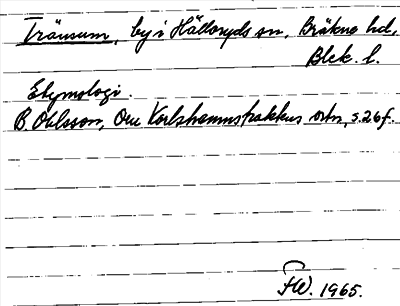 Tränsum, by i Hällaryds sn, Bräkne hd,
Blek. l.
Etymologi.
B. Ohlsson, Om Karlshamnstraktens ortn, s. 26 f.
HW. 1965.